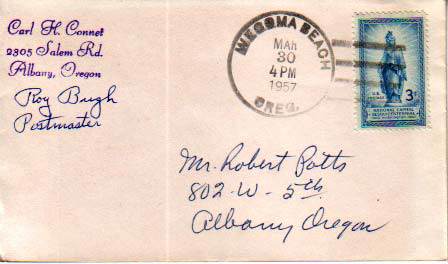 Carl H. Connet
2305 Salem Rd.
Albany, Oregon
Roy Bugh
Postmaster
WECOMA BEACH
MAR
30
4 PM
1957
OREG.
U.S. POSTAGE
3¢
NATIONAL CAPITAL
SESQUICENTENNIAL
Mr. Robert Potts
802-W-5th
Albany Oregon